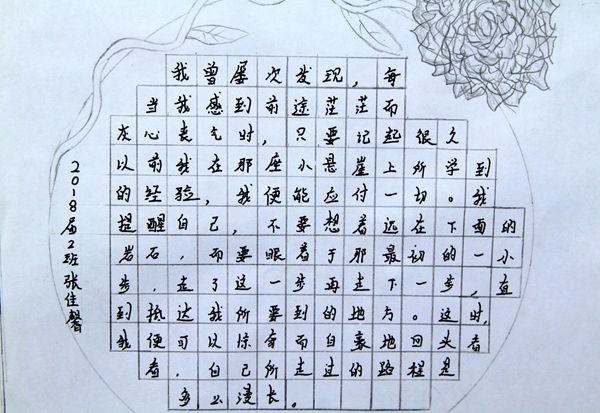 我曾屡次发现，每
当我感到前途茫茫而
灰心丧气时，只要记起很久
以前我在那座小悬崖上所学到
的经验，我便能应付一切。我
提醒自己，不要想着远在下面的
岩石，而要眼着于那最初的一小
步，走了这一步再走下一步，直
到抵达我所要到的地方。这时，
我便可以惊奇而自豪地回头看
看，自己所走过的路程是
多么漫长。
2018届2班张佳馨